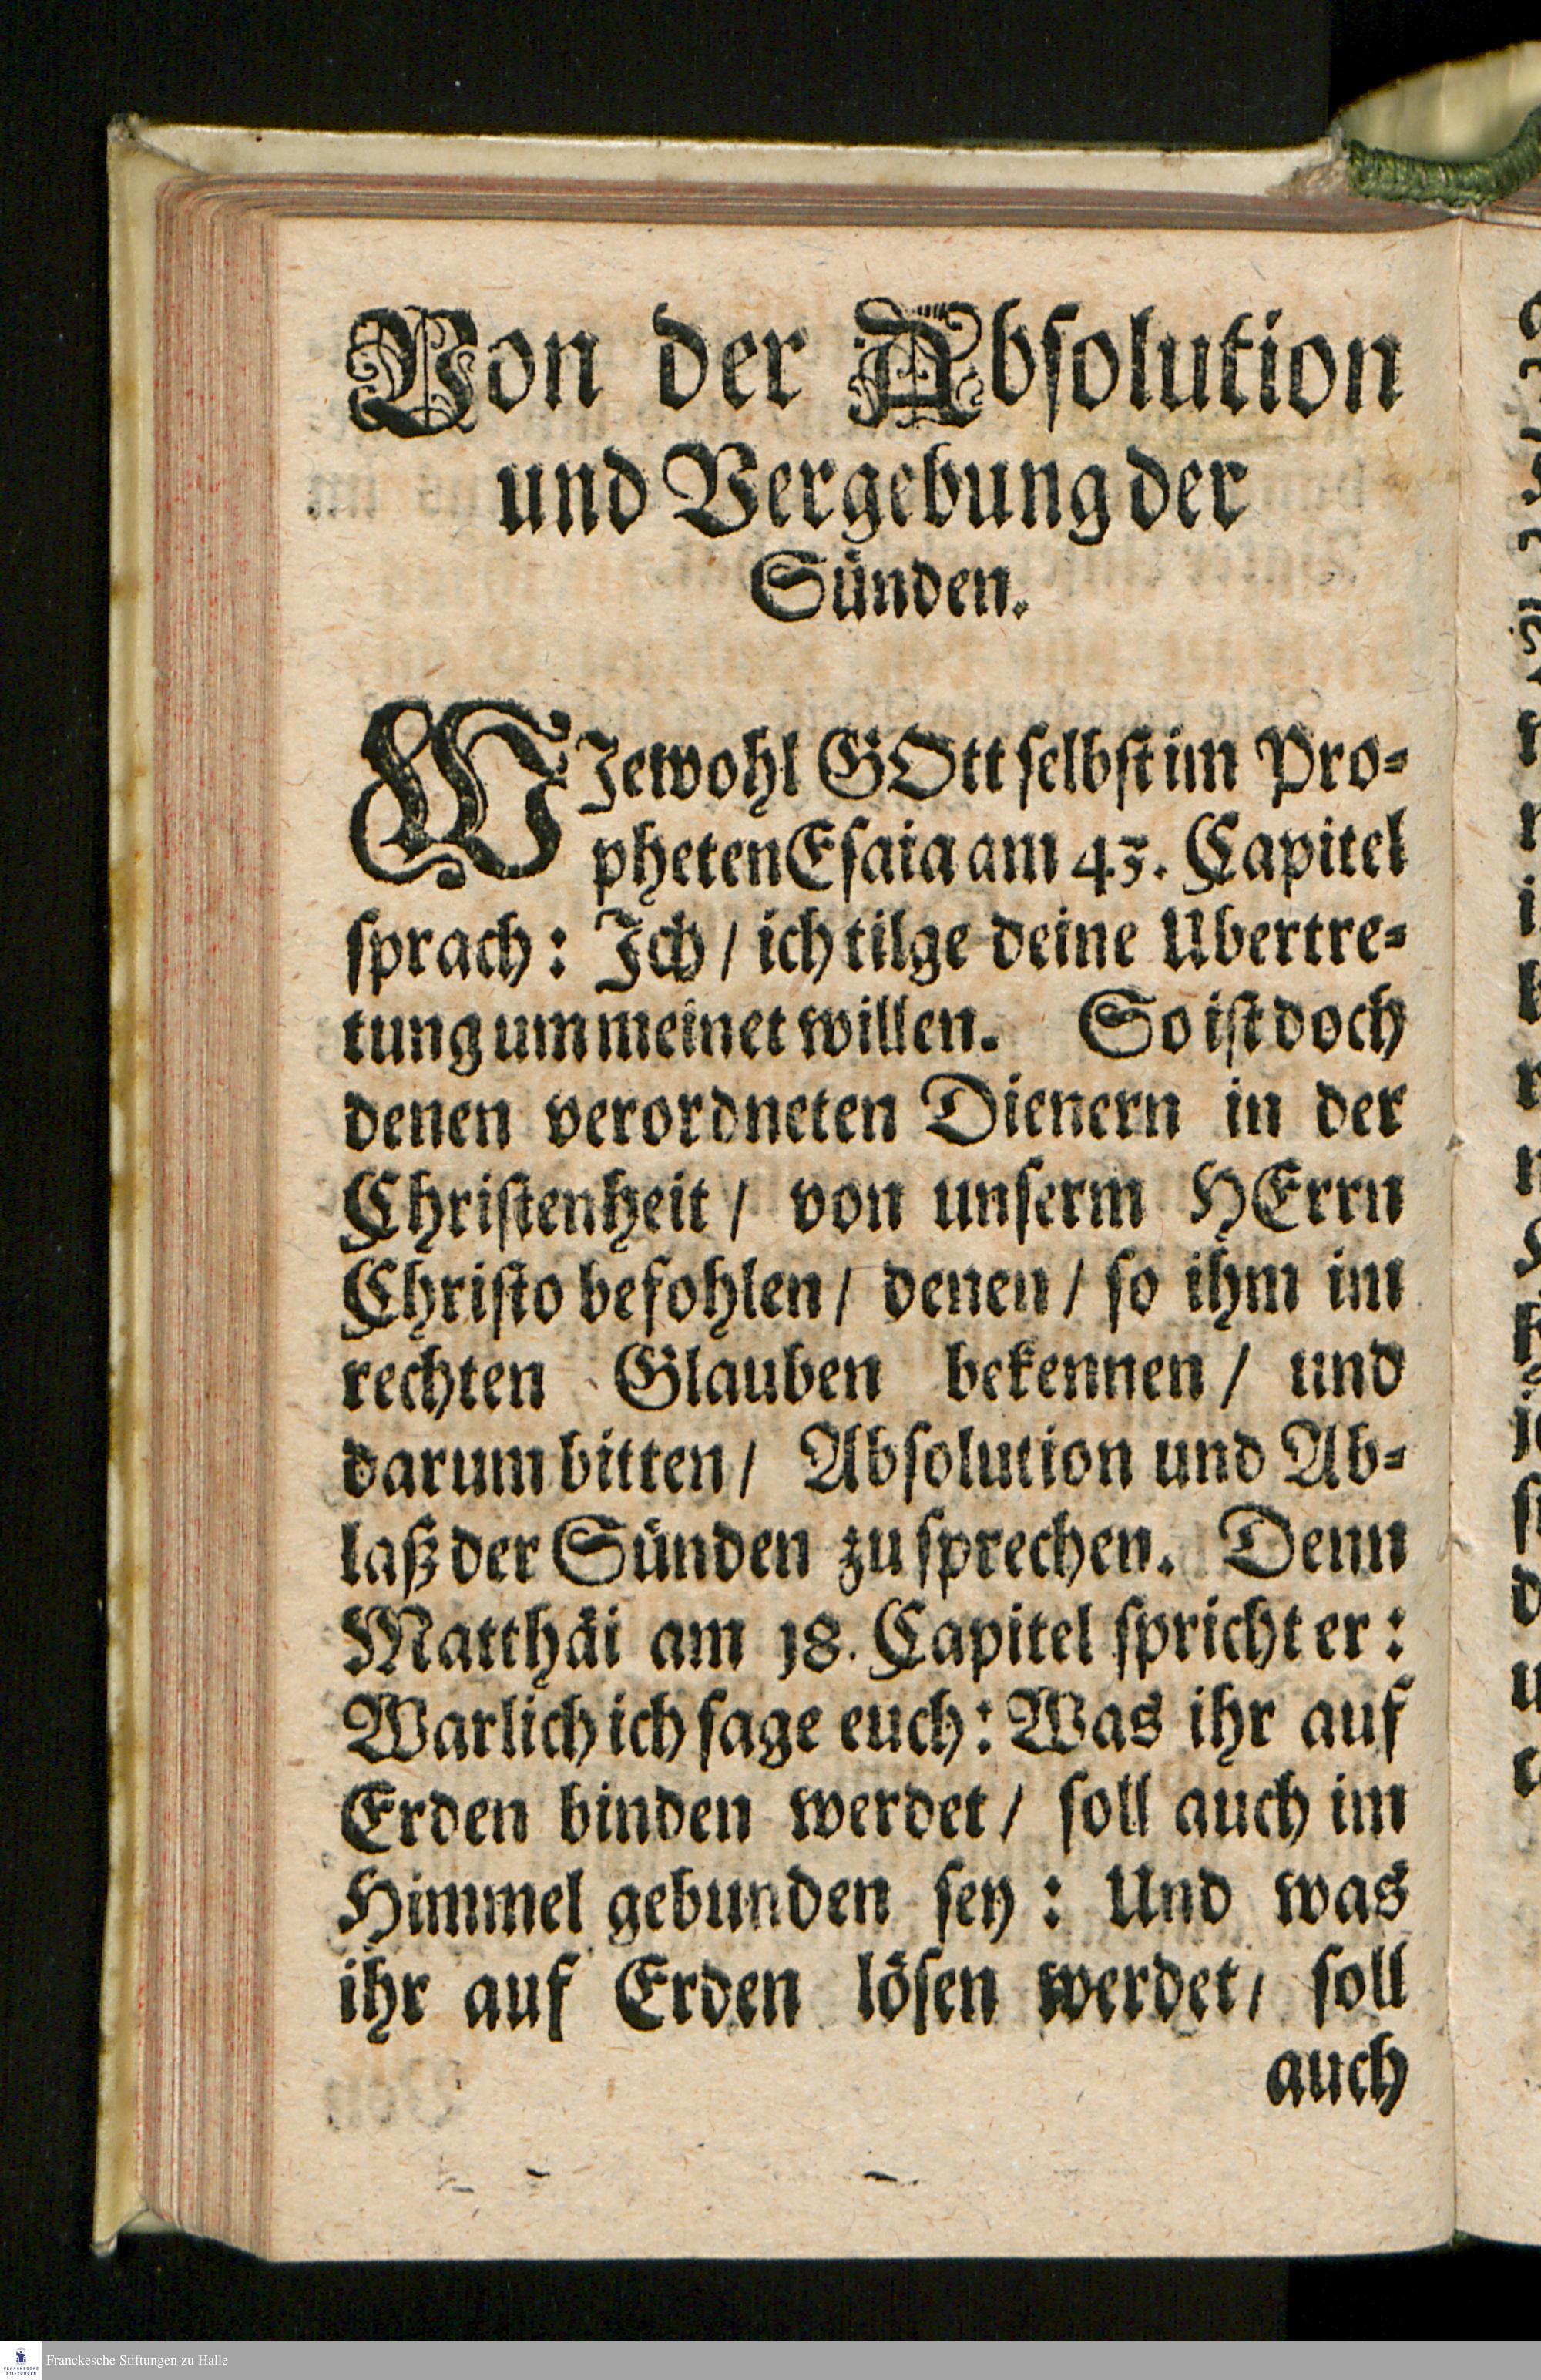 Von der Absolution
und Vergebung der
Sünden.
WJewohl GOtt selbst im Pro-
pheten Esaia am 43. Capitel
sprach: Jch / ich tilge deine Ubertre-
tung um meinet willen. So ist doch
denen verordneten Dienern in der
Christenheit / von unserm HErrn
Christo befohlen / denen / so ihm im
rechten Glauben bekennen / und
darum bitten / Absolution und Ab-
laß der Sünden zu sprechen. Denn
Matthäi am 18. Capitel spricht er:
Warlich ich sage euch: Was ihr auf
Erden binden werdet / soll auch im
Himmel gebunden sey: Und was
ihr auf Erden lösen werdet / soll
auch
Franckesche Stiftungen zu Halle